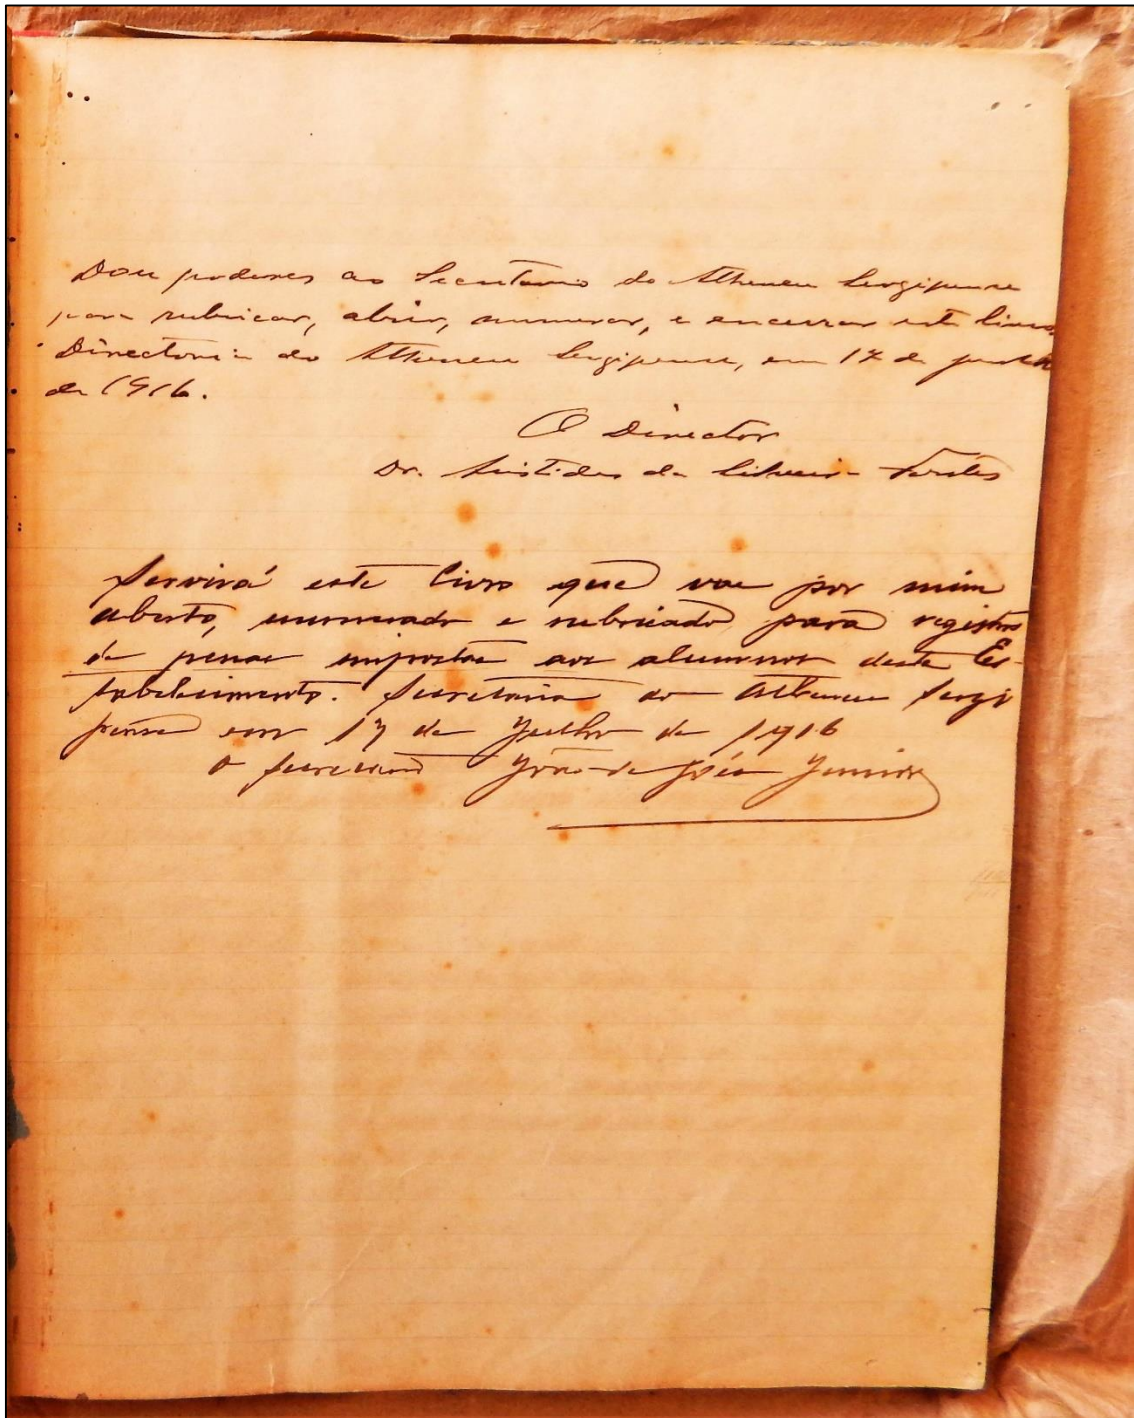 Dou poderes ao Secretario do Atheneu Sergipense
para rubricar, abrir, numerar, e encerrar este livro.
Directoria do Atheneu Sergipense, em 17 de
de 1916.
O Director
Dr. Aristides da Silveira Fontes
Servirá este livro que vae por mim
aberto, numerado e rubricado para registro
de penas impostas aos alumnos deste Es-
tabelecimento. Secretaria do Atheneu Sergi
pense em 17 de Julho de 1916
O Secretario João de Junior